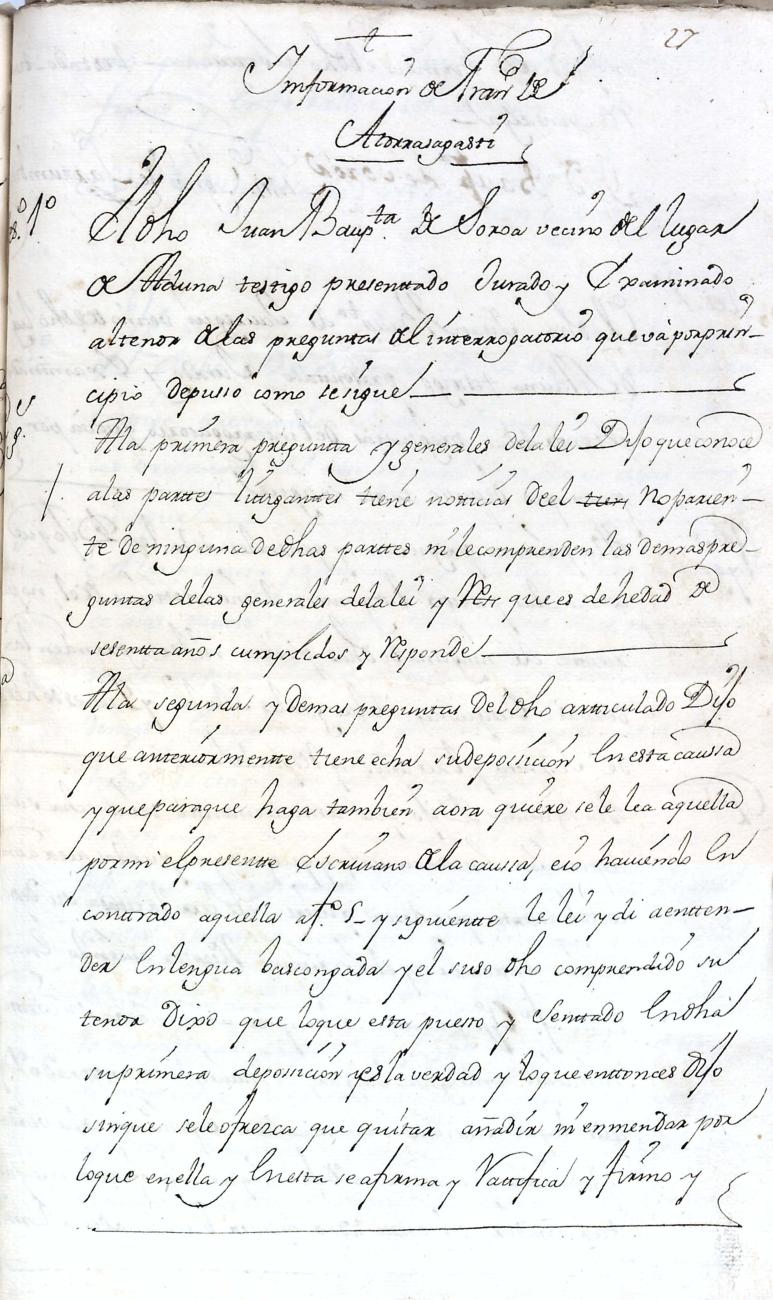 27
Informacion de Fran.co de
Atorrasagasti
1º El dho Juan Baup.ta de Soroa vecino del lugar
de Alduna testigo presenttado Jurado y Examinado
altenor delas preguntas del interrogatorio que và porprin-
cipio depusso como sesigue
Ala primera preguntta y generales delalei Dijo queconoce
alas parttes litiganttes tiene notticias deel no parien-
te de ninguna dedhas parttes ni lecomprenden las demas pre-
guntas delas generales delalei y que es dehedad de
sesentta años cumplidos y Responde
Ala segunda y demas preguntas del dho artticulado Dijo
que anteriormentte tiene echa sudeposicion En esta caussa
y que paraque haga tambien aora quiere se le lea aquella
pormi elpresentte Escrivano dela caussa, eio haviendo En
conttrado aquella af.º 5 y siguientte le lei y di aentten-
der En lengua bascongada y el suso dho comprendido su
tenor Dixo que loque esta puesto y Senttado En dha
suprimera deposicion es la verdad y loque enttonces dijo
sinque sele ofrezca que quitar añadir ni enmendar por
loque enella y En esta se afirma y Rattifica y firmo y